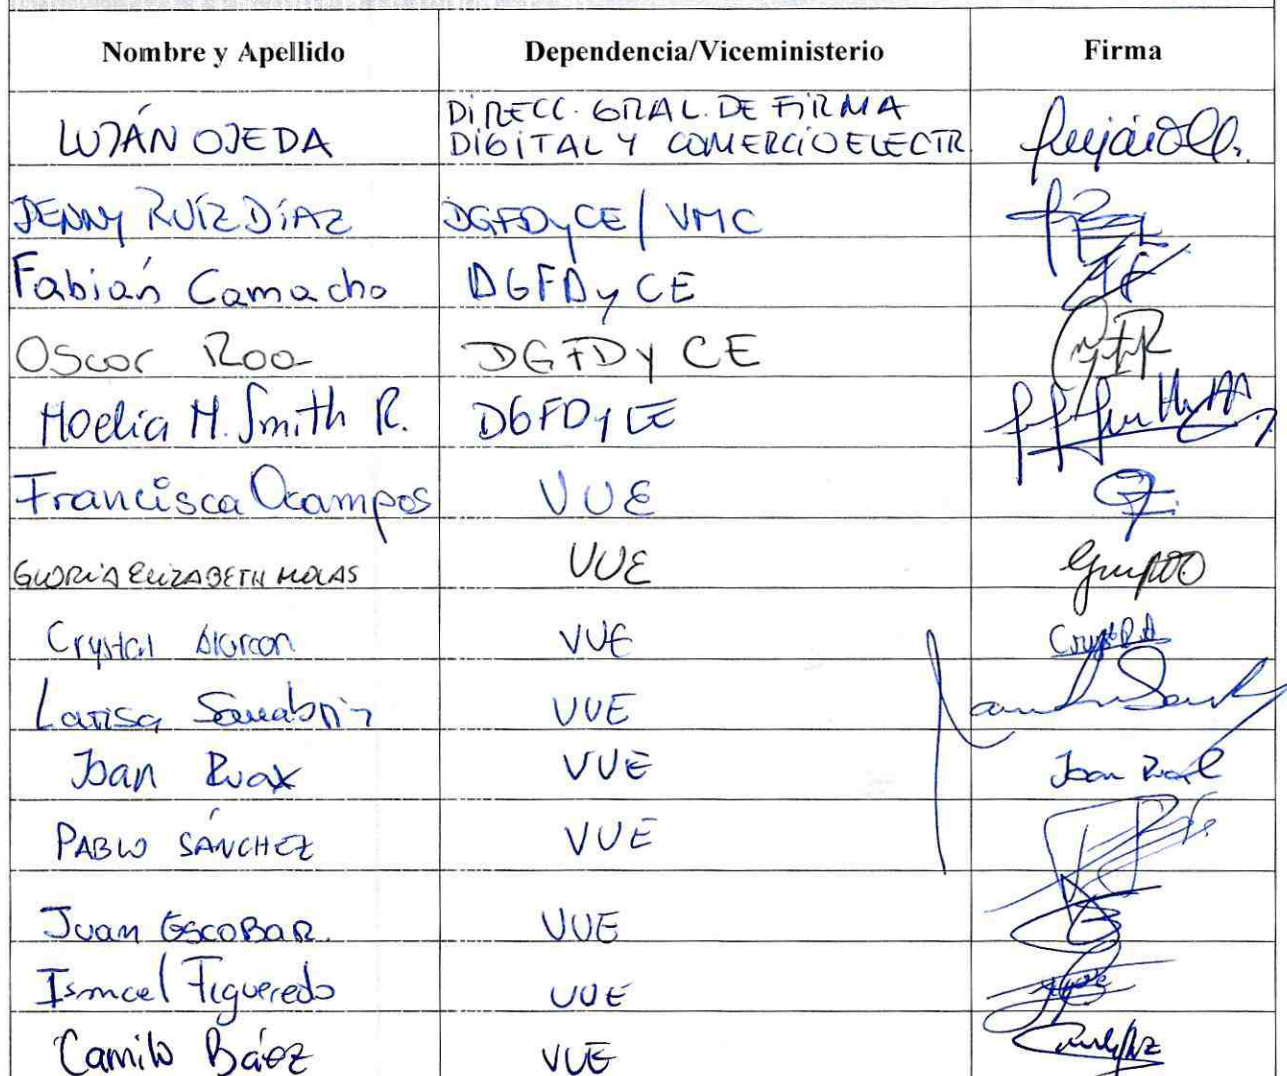 Nombre y Apellido Dependencia/Viceministerio Firma
LUJÁN OJEDA DIRECC. GRAL. DE FIRMA
DIGITAL Y COMERCIO ELECTR
JENNY RUÍZ DÍAZ DGFDyCE / VMC
Fabián Camacho DGFDy CE
Oscar Roa DGFDy CE
Noelia M. Smith R. DGFDy CE
Francisca Ocampos VUE
GLORIA ELIZABETH MOLAS VUE
Crystal Alarcon VUE
Larisa Sanabria VUE
Joan Ruax VUE Joan
PABLO SÁNCHEZ VUE
Juan ESCOBAR. VUE
Ismael Figueredo VUE
Camilo Báez VUE